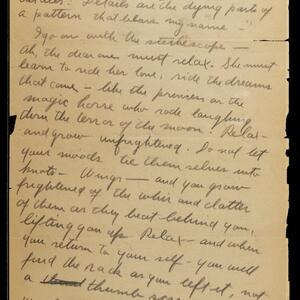 Details are the dying parts of
a pattern that bears my name —
I go on with the stethescope —
Ah, the dear one must relax. She must
learn to ride her love, ride the dreams
that come — like the premiere on the
magic horse who rode laughing
thru the terror of the moon. Relax —
and grow unfrightened. Do not let
your moods tie them selves into
knots — Wings — and you grow
frightened of the whir and clatter
of them as they beat behind you,
lifting you up. Relax — and when
you return to your self — you will
find the rack as you left it, not
a thumb